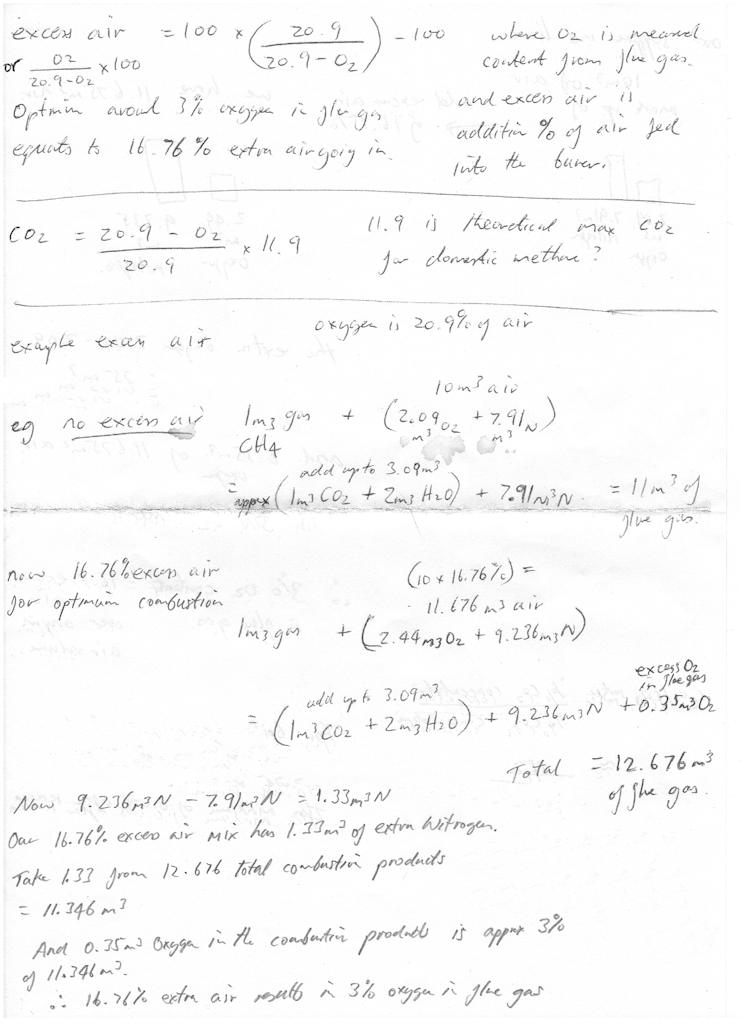 excess air = 100 × (20.9 / 20.9 - O2) - 100
where O2 is measured content from flue gas.
or O2 / 20.9-O2 × 100
and excess air is addition % of air fed into the burner.
Optimum around 3% oxygen in flue gas
equates to 16.76% extra air going in.
CO2 = 20.9 - O2 / 20.9 × 11.9
11.9 is theoretical max CO2
for domestic methane?
oxygen is 20.9% of air
example excess air
10m3 air
eg no excess air 1m3 gas + (2.09 O2 + 7.91 N)
CH4 m3 m3
add upto 3.09m3
= approx (1m3 CO2 + 2m3 H2O) + 7.91m3N. = 11m3 of
flue gas.
now 16.76% excess air (10 × 16.76%) =
for optimum combustion 11.676 m3 air
1m3 gas + (2.44m3O2 + 9.236m3N)
excess O2
in flue gas
add up to 3.09m3
= (1m3 CO2 + 2m3 H2O) + 9.236m3N + 0.35m3O2
Total = 12.676m3
of flue gas.
Now 9.236m3N - 7.91m3N = 1.33m3N
Our 16.76% excess air mix has 1.33m3 of extra Nitrogen.
Take 1.33 from 12.676 total combustion products
= 11.346 m3
And 0.35m3 Oxygen in the combustion products is approx 3%
of 11.346m3.
∴ 16.76% extra air results in 3% oxygen in flue gas